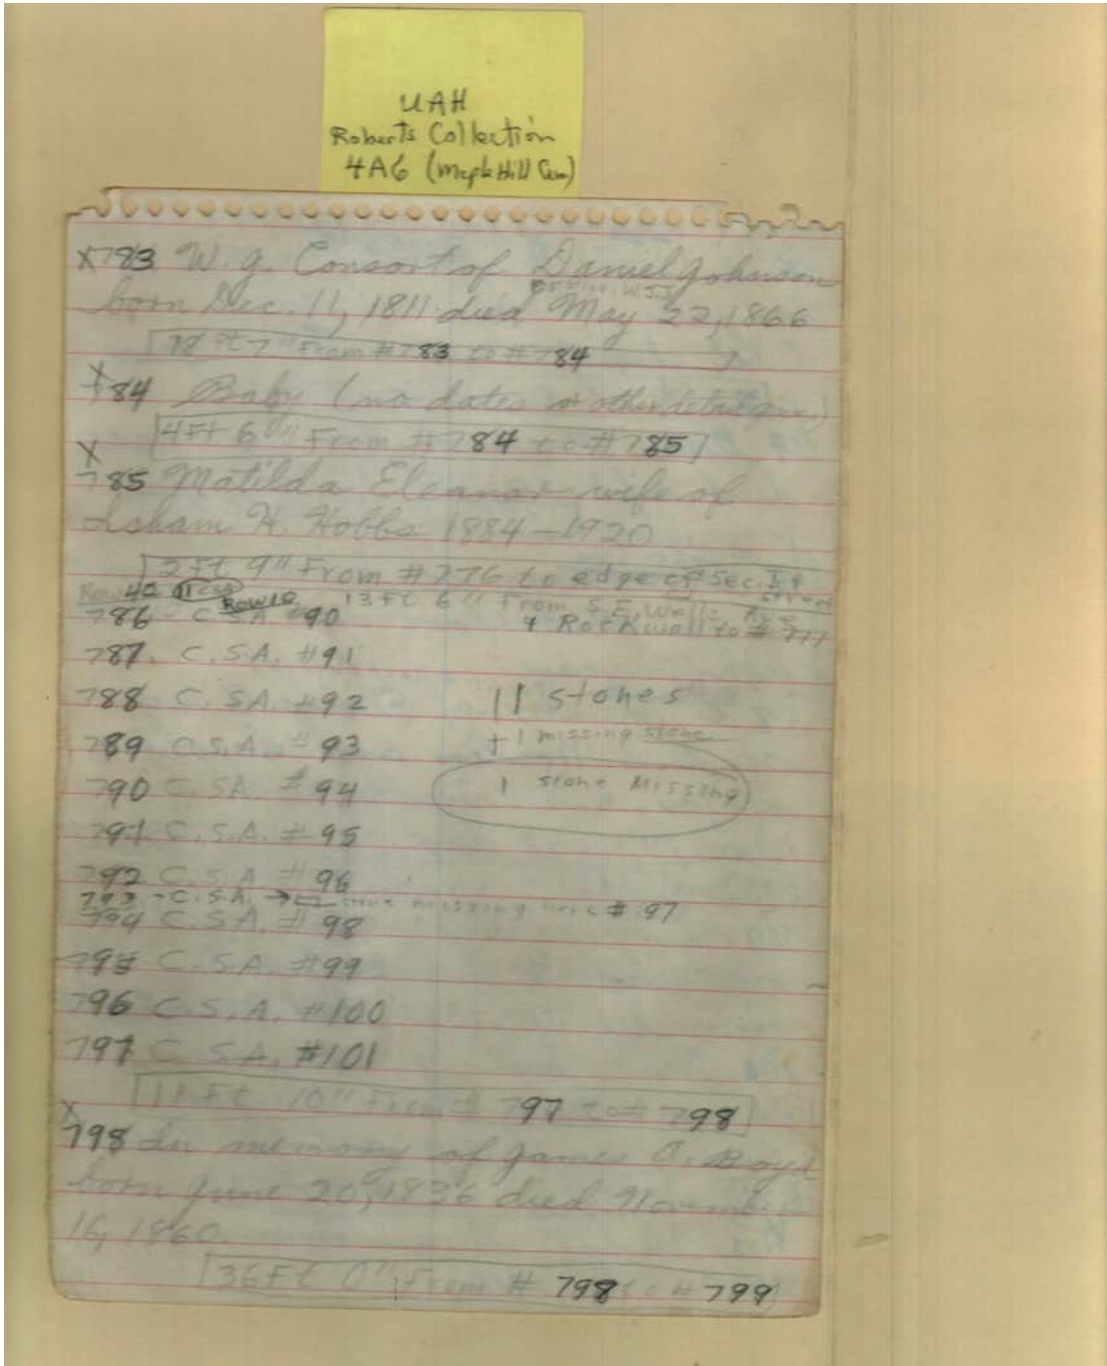 UAH
Roberts Collection
4A6 (Maple Hill Cem)
X783 W. G. Consort of Daniel Johnson
born Dec. 11, 1811 died May 22, 1866
18 Ft 7" From #783 to #784
X
784 Baby (no dates or other details given)
4 Ft 6" From #784 to #785
X
785 Matilda Eleanor wife of
Isham H. Hobbs 1884-1920
2 Ft 9" From #776 to edge of Sec.
Row 40 11 CSA Row 10 13 Ft 6" From S.E. Wells Ave
786 - C.S.A #90 & Rockwall to # 777
787. C.S.A. #91
788 C.S.A. #92 11 stones
789 C.S.A. #93 +1 missing stone
790 C.SA. #94 1 stone Missing
791 C.S.A. #95
792 C.S.A. #96
793 - C.S.A. → stone missing here # 97
794 C.S.A. #98
795 C.S.A. #99
796 C.S.A. #100
797 C.S.A. #101
11 Ft 10" From # 797 to # 798
X
798 In memory of James A. Boyd
born June 20, 1836 died November
16, 1860
36 Ft 0" From # 798 to # 799